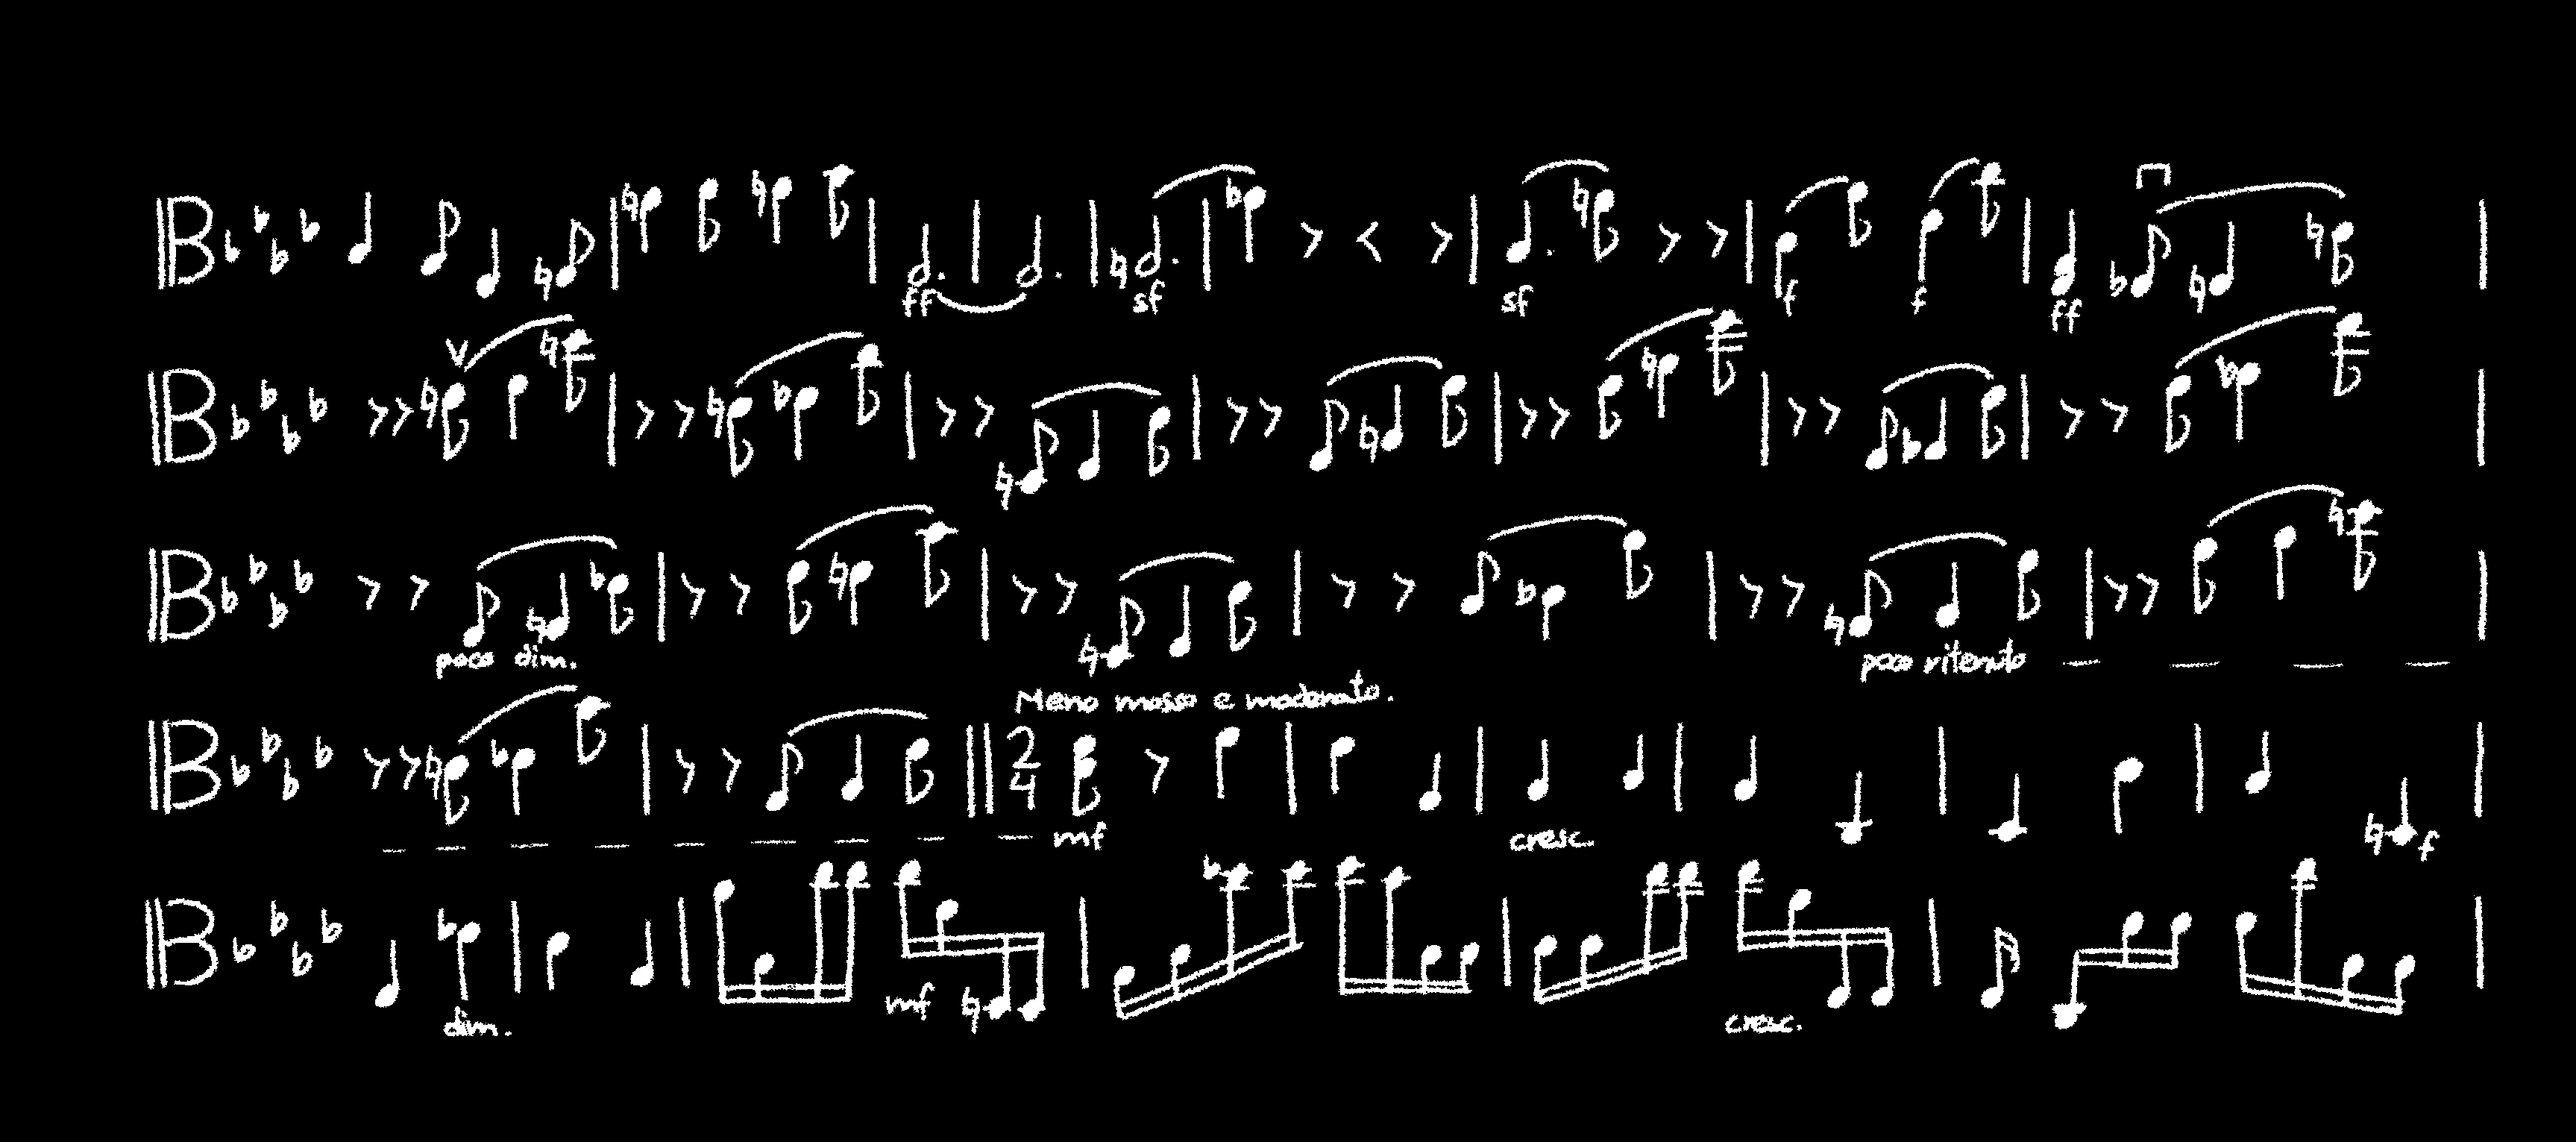 ff sf sf f f ff
poco dim. poco ritenuto
Meno mosso e moderato.
2
4
mf cresc. f
mf
dim. cresc.